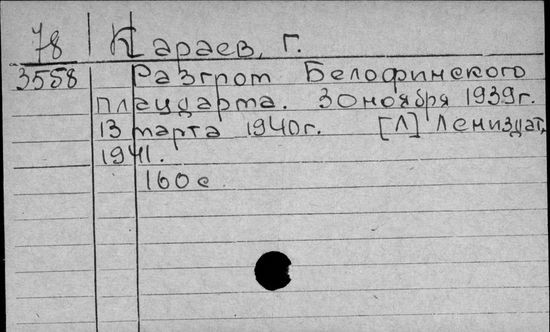 78 Караев, Г.
3558 Разгром Белофинского
плацдарма. 30 ноября 1939г.
13 марта 1940г. [Л] Лениздат,
1941.
160 с